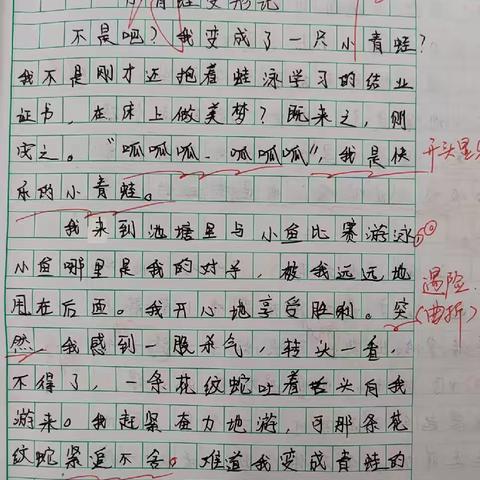 小青蛙变形记
不是吧？我变成了一只小青蛙？
我不是刚才还抱着蛙泳学习的结业
证书，在床上做美梦？既来之，则
安之。“呱呱呱，呱呱呱”，我是快 开头呈
乐的小青蛙。
我来到池塘里与小鱼比赛游泳，
小鱼哪里是我的对手，被我远远地 遇险
甩在后面。我开心地享受胜利。突 （曲折）
然，我感到一股杀气，转头一看，
不得了，一条花纹蛇吐着舌头向我
游来。我赶紧奋力地游，可那条花
纹蛇紧追不舍。难道我变成青蛙的